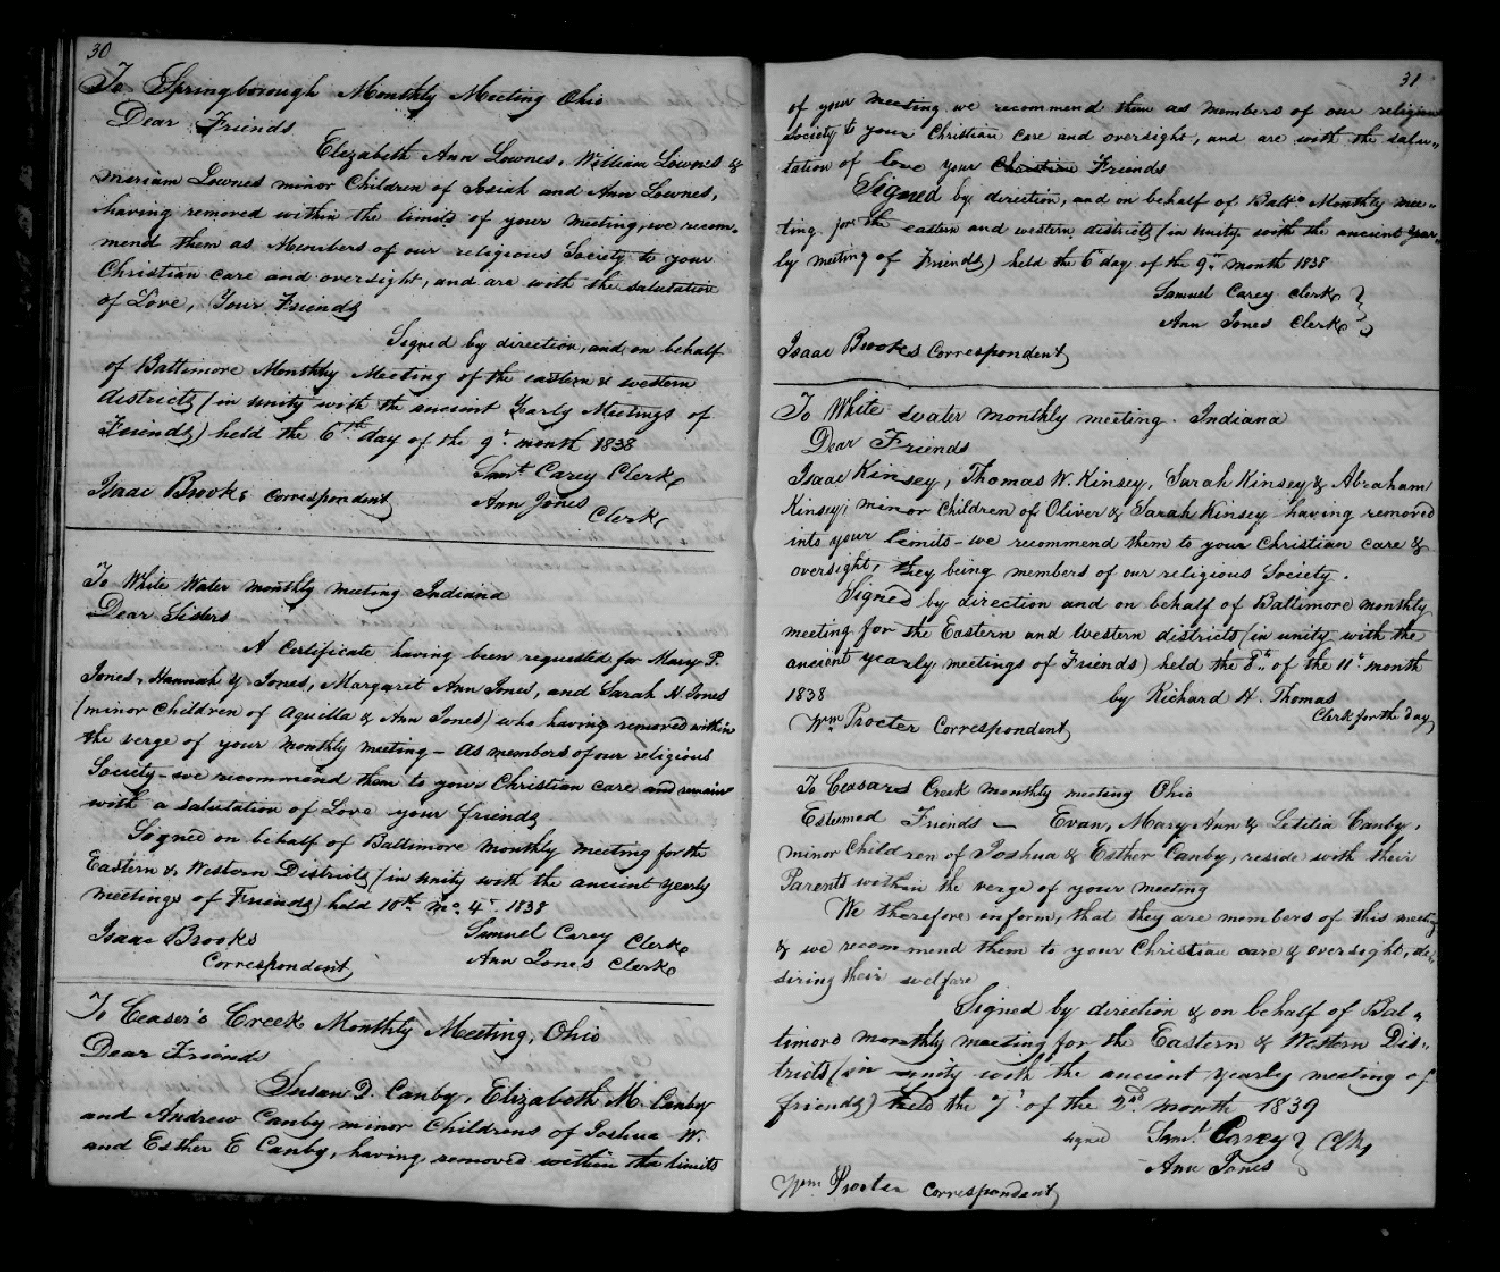 30
To Springborough Monthly Meeting Ohio
Dear Friends
Elizabeth Ann Lownes, William Lownes &
Meriam Lownes minor Children of Josiah and Ann Lownes,
having removed within the limits of your meeting, we recom=
mend them as Members of our religious Society to your
Christian care and oversight, and are with the salutation
of Love, Your Friends
Signed by direction, and on behalf
of Baltimore Monthly Meeting of the eastern & western
districts (in unity with the ancient Yearly Meetings of
Friends) held the 6th day of the 9th month 1838
Saml Carey Clerk
Isaac Brooks Correspondent
Ann Jones
Clerk
To White Water monthly meeting Indiana
Dear Sisters
A Certificate having been requested for Mary P.
Jones, Hannah Jones, Margaret Ann Jones, and Sarah H Jones
(minor Children of Aquilla & Ann Jones) who having removed within
the verge of your monthly meeting – As members of our religious
Society – we recommend them to your Christian care and remain
with a salutation of Love your friends
Signed on behalf of Baltimore monthly meeting for the
Eastern & Western Districts (in unity with the ancient yearly
meetings of Friends) held 10th mo. 4th 1838
Isaac Brooks
Correspondent
Samuel Carey Clerk
Ann Jones Clerk
To Ceaser's Creek Monthly Meeting, Ohio
Dear Friend
Susan D. Canby, Elizabeth M. Canby
and Andrew Canby minor Childrens of Joshua W.
and Esther E Canby, having removed within the limits
31
of your meeting we recommend them as members of our religious
Society to your Christian care and oversight, and are with the salu=
tation of love your Christian Friends
Signed by direction, and on behalf of Balto Monthly mee=
ting for the eastern and western districts (in unity with the ancient year=
ly meeting of Friends) held the 6 day of the 9th month 1838
Samuel Carey Clerk
Ann Jones Clerk
Isaac Brookes Correspondent
To White water monthly meeting. Indiana
Dear Friends
Isaac Kinsey, Thomas W. Kinsey, Sarah Kinsey & Abraham
Kinsey, minor children of Oliver & Sarah Kinsey having removed
into your limits – we recommend them to your Christian care &
oversight, they being members of our religious Society.
Signed by direction and on behalf of Baltimore monthly
meeting for the Eastern and Western districts (in unity with the
ancient yearly meetings of Friends) held the 8th of the 11th month
1838 by Richard H. Thomas
Clerk for the day
Wm Procter Correspondent
To Ceasars Creek monthly meeting Ohio
Esteemed Friends – Evan, Mary Ann & Letitia Canby,
minor Children of Joshua & Esther Canby, reside with their
Parents within the verge of your meeting
We therefore inform, that they are members of this meeting
& we recommend them to your Christian care & oversight, de=
siring their welfare
Signed by direction & on behalf of Bal=
timore monthly meeting for the Eastern & Western Dis=
tricts (in unity with the ancient yearly meeting of
friends) held the 7th of the 2nd month 1839
signed Saml Carey Clks
Ann Jones
Wm Procter Correspondent